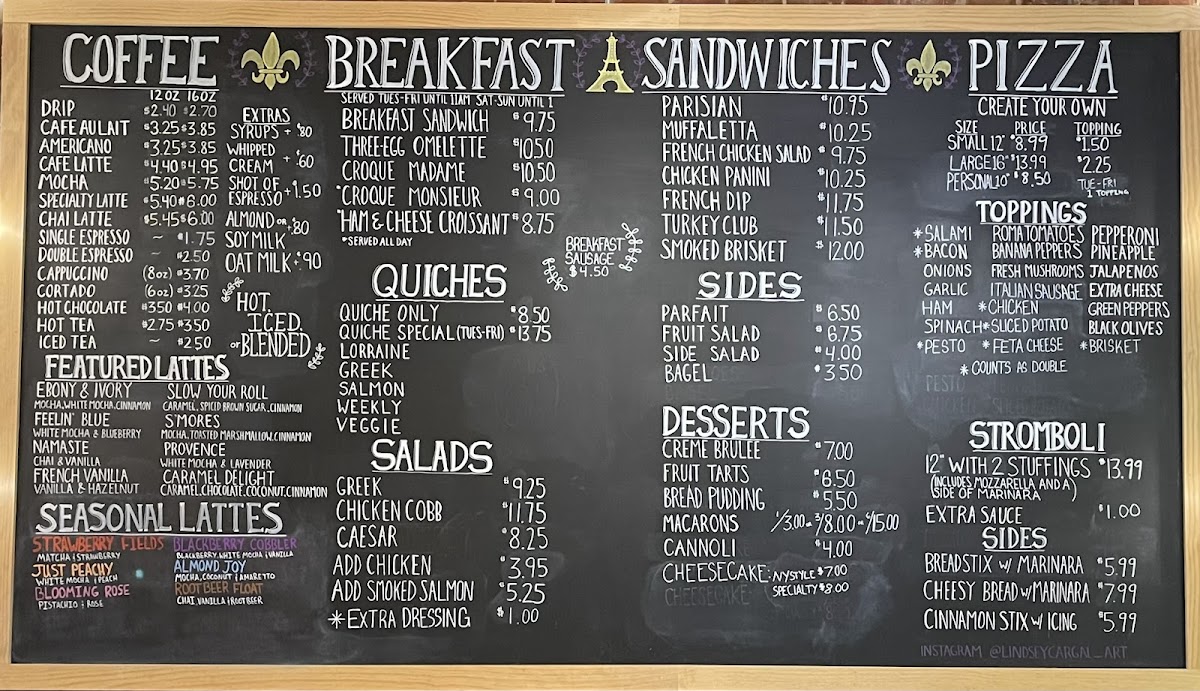 COFFEE
12 OZ 16 OZ
DRIP $2.40 $2.70
CAFE AU LAIT $3.25 $3.85
AMERICANO $3.25 $3.85
CAFE LATTE $4.40 $4.95
MOCHA $5.20 $5.75
SPECIALTY LATTE $5.40 $6.00
CHAI LATTE $5.45 $6.00
SINGLE ESPRESSO ~ $1.75
DOUBLE ESPRESSO ~ $2.50
CAPPUCCINO (8oz) $3.70
CORTADO (6oz) $3.25
HOT CHOCOLATE $3.50 $4.00
HOT TEA $2.75 $3.50
ICED TEA ~ $2.50
EXTRAS
SYRUPS + $.80
WHIPPED
CREAM + $.60
SHOT OF
ESPRESSO + 1.50
ALMOND or
SOY MILK +.80
OAT MILK $.90
HOT,
ICED,
or BLENDED
FEATURED LATTES
EBONY & IVORY
MOCHA, WHITE MOCHA, CINNAMON
FEELIN' BLUE
WHITE MOCHA & BLUEBERRY
NAMASTE
CHAI & VANILLA
FRENCH VANILLA
VANILLA & HAZELNUT
SLOW YOUR ROLL
CARAMEL, SPICED BROWN SUGAR, CINNAMON
S'MORES
MOCHA, TOASTED MARSHMALLOW, CINNAMON
PROVENCE
WHITE MOCHA & LAVENDER
CARAMEL DELIGHT
CARAMEL, CHOCOLATE, COCONUT, CINNAMON
SEASONAL LATTES
STRAWBERRY FIELDS
MATCHA & STRAWBERRY
JUST PEACHY
WHITE MOCHA & PEACH
BLOOMING ROSE
PISTACHIO & ROSE
BLACKBERRY COBBLER
BLACKBERRY, WHITE MOCHA & VANILLA
ALMOND JOY
MOCHA, COCONUT & AMARETTO
ROOTBEER FLOAT
CHAI, VANILLA & ROOTBEER
BREAKFAST
SERVED TUES-FRI UNTIL 11AM SAT-SUN UNTIL 1
BREAKFAST SANDWICH $9.75
THREE-EGG OMELETTE $10.50
CROQUE MADAME $10.50
*CROQUE MONSIEUR $9.00
*HAM & CHEESE CROISSANT $8.75
*SERVED ALL DAY
BREAKFAST
SAUSAGE
$4.50
QUICHES
QUICHE ONLY $8.50
QUICHE SPECIAL (TUES-FRI) $13.75
LORRAINE
GREEK
SALMON
WEEKLY
VEGGIE
SALADS
GREEK $9.25
CHICKEN COBB $11.75
CAESAR $8.25
ADD CHICKEN $3.95
ADD SMOKED SALMON $5.25
*EXTRA DRESSING $1.00
SANDWICHES
PARISIAN $10.95
MUFFALETTA $10.25
FRENCH CHICKEN SALAD $9.75
CHICKEN PANINI $10.25
FRENCH DIP $11.75
TURKEY CLUB $11.50
SMOKED BRISKET $12.00
SIDES
PARFAIT $6.50
FRUIT SALAD $6.75
SIDE SALAD $4.00
BAGEL $3.50
DESSERTS
CREME BRULEE $7.00
FRUIT TARTS $6.50
BREAD PUDDING $5.50
MACARONS 1/3.00 or 3/8.00 or 6/15.00
CANNOLI $4.00
CHEESECAKE: NY STYLE $7.00
SPECIALTY $8.00
CHEESECAKE:
PIZZA
CREATE YOUR OWN
SIZE PRICE TOPPING
SMALL 12" $8.99 $1.50
LARGE 16" $13.99 $2.25
PERSONAL 10" $8.50 TUE-FRI
1 TOPPING
TOPPINGS
*SALAMI ROMA TOMATOES PEPPERONI
*BACON BANANA PEPPERS PINEAPPLE
ONIONS FRESH MUSHROOMS JALAPENOS
GARLIC ITALIAN SAUSAGE EXTRA CHEESE
HAM *CHICKEN GREEN PEPPERS
SPINACH *SLICED POTATO BLACK OLIVES
*PESTO *FETA CHEESE *BRISKET
*COUNTS AS DOUBLE
PESTO
STROMBOLI
12" WITH 2 STUFFINGS $13.99
(INCLUDES MOZZARELLA AND A
SIDE OF MARINARA)
EXTRA SAUCE $1.00
SIDES
BREADSTIX w/ MARINARA $5.99
CHEESY BREAD w/ MARINARA $7.99
CINNAMON STIX w/ ICING $5.99
INSTAGRAM @LINDSEYCARGAL_ART